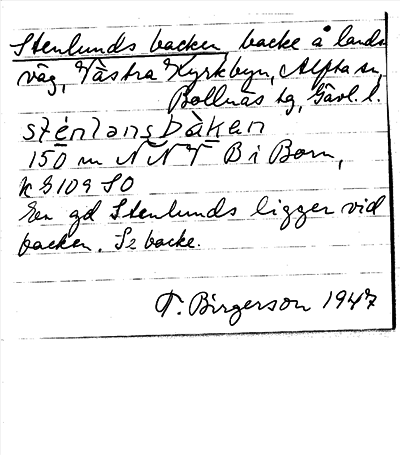 Stenlunds backen, backe å lands
väg, Västra Kyrkbyn, Alfta sn,
Bollnäs tg, Gävl. l.
sténlənsbàkan
150 m NNV B i Born,
k G 109 SO
En gd Stenlunds ligger vid
backen. Se backe.
T. Birgerson 1947